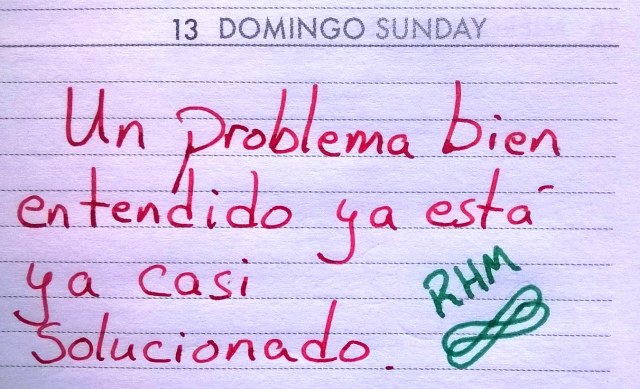 13 DOMINGO SUNDAY
Un problema bien
entendido ya está
ya casi
solucionado.
RHM